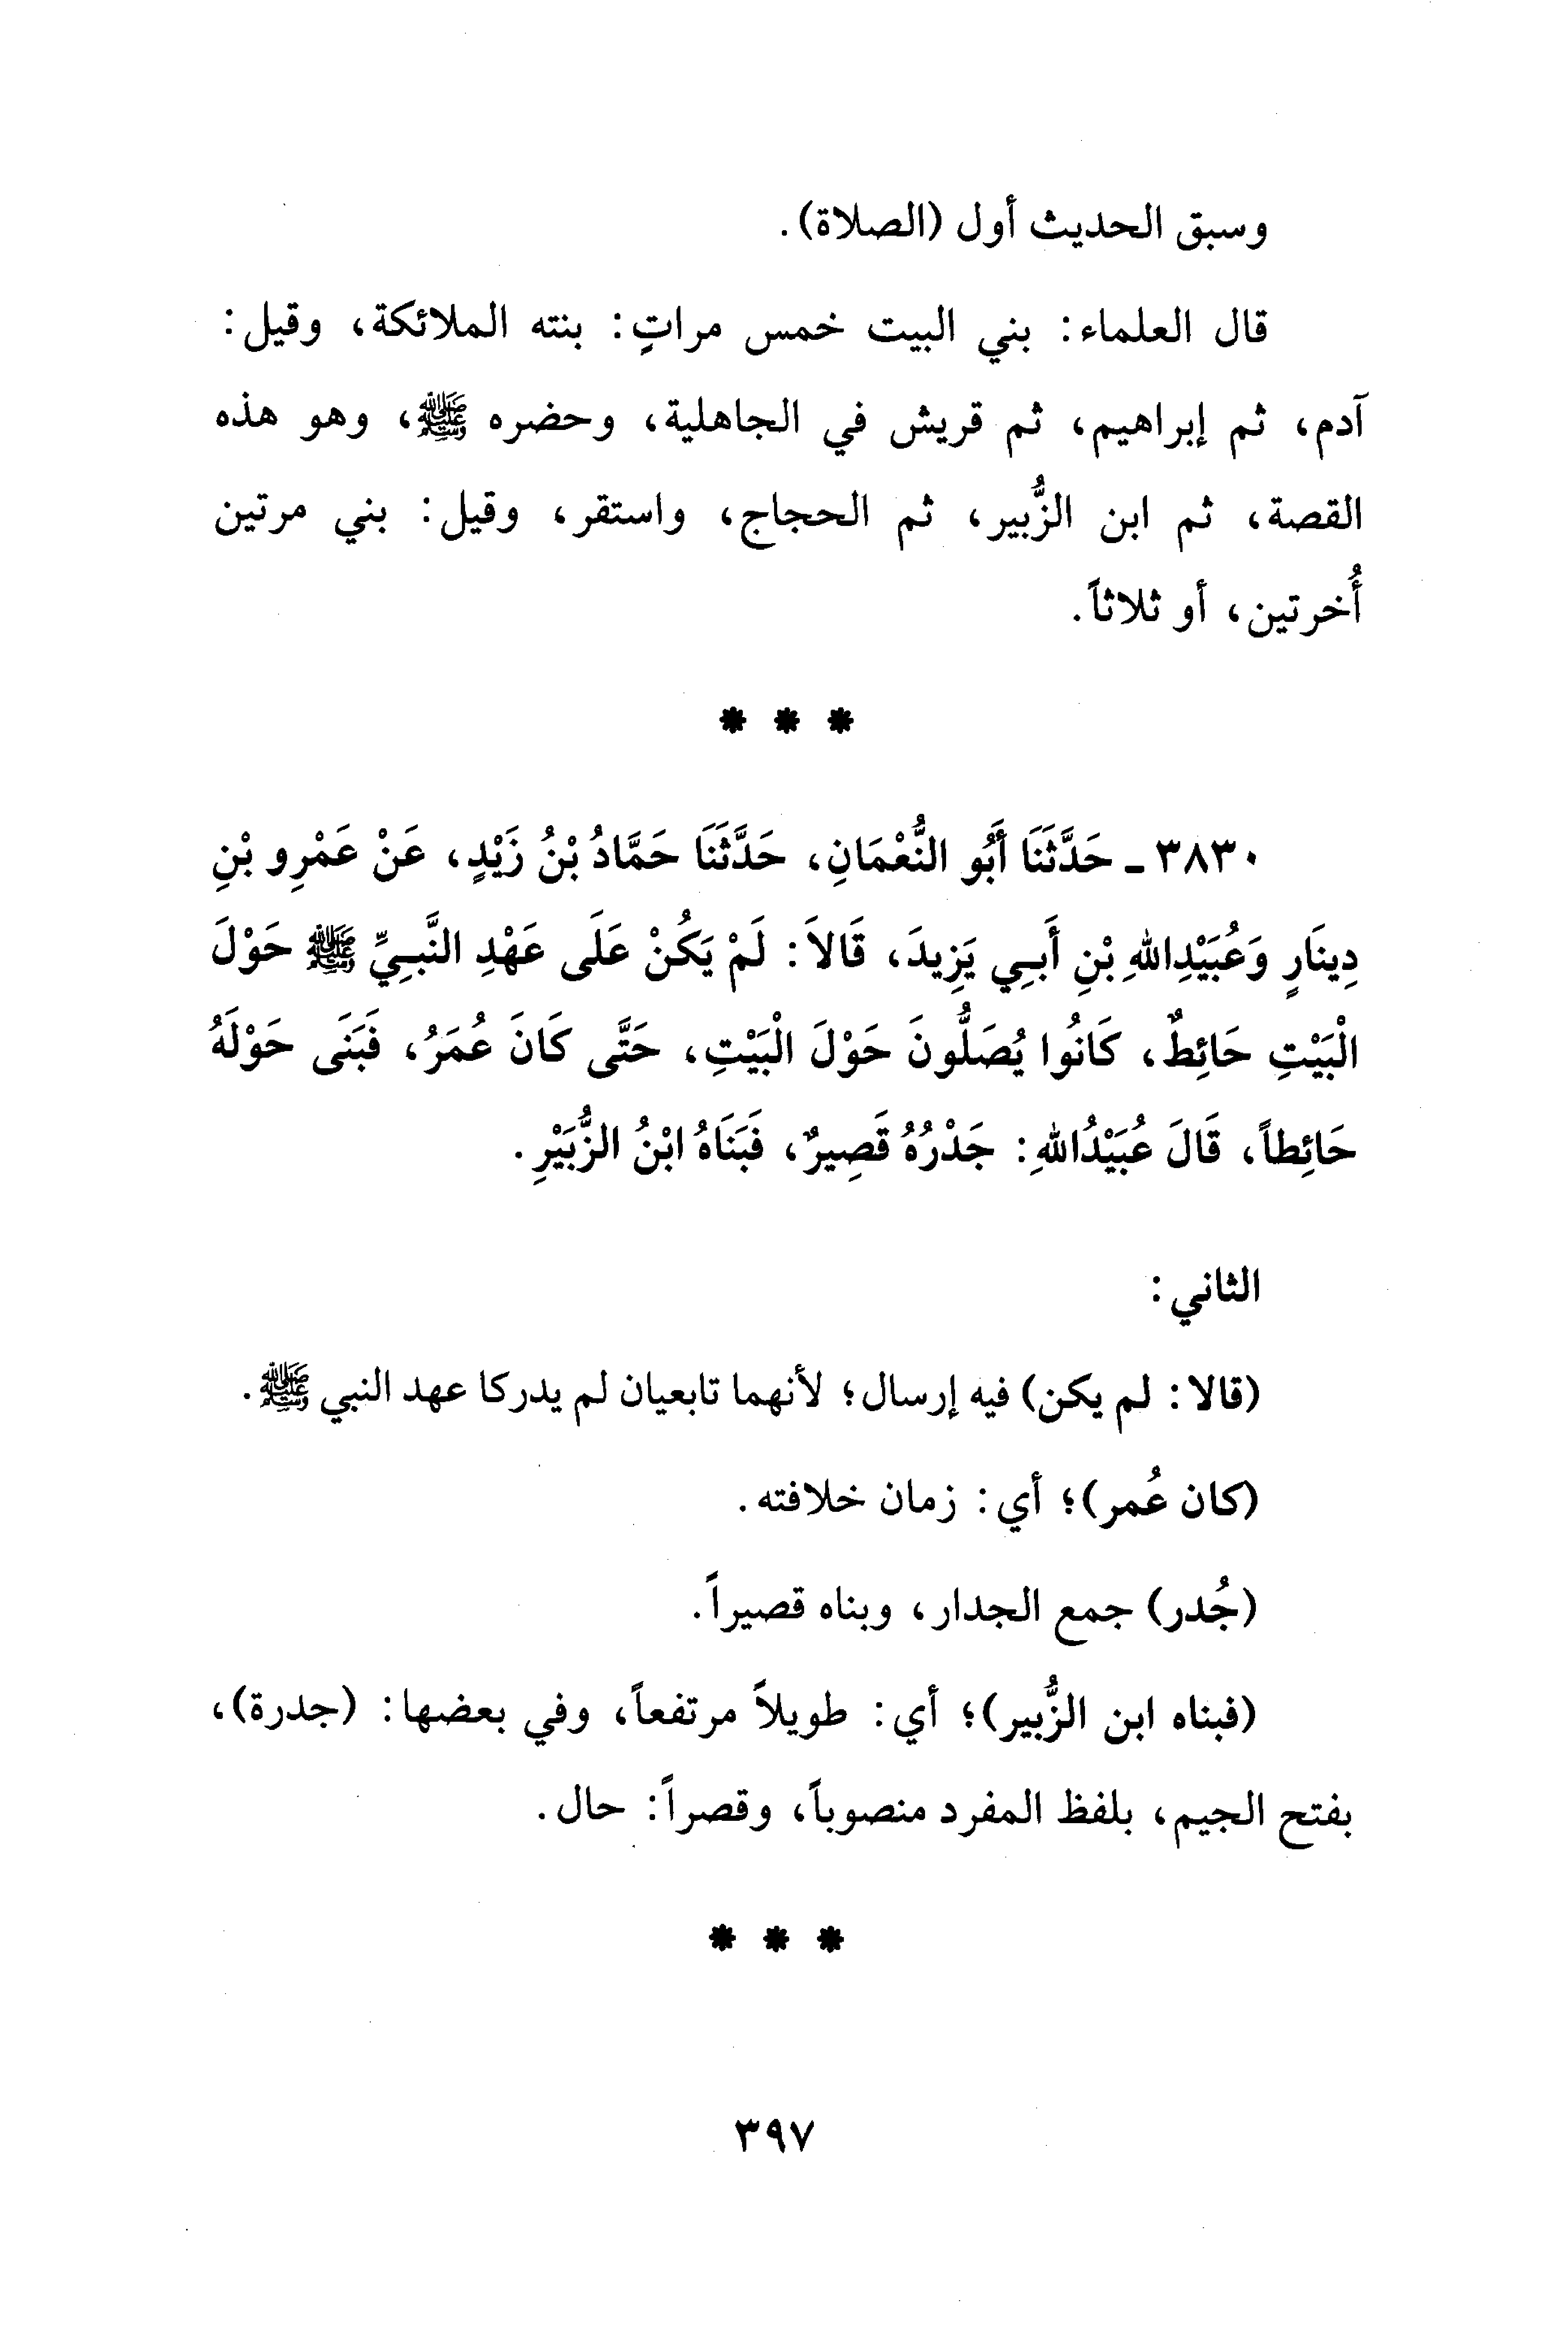 وسبق الحديث أول (الصلاة).
قال العلماء: بني البيت خمس مراتٍ: بنته الملائكة، وقيل:
آدم، ثم إبراهيم، ثم قريش في الجاهلية، وحضره ﷺ، وهو هذه
القصة، ثم ابن الزُّبير، ثم الحجاج، واستقر، وقيل: بني مرتين
أُخرتين، أو ثلاثاً.
* * *
٣٨٣٠ ـ حَدَّثَنَا أَبُو النُّعْمَانِ، حَدَّثَنَا حَمَّادُ بْنُ زَيْدٍ، عَنْ عَمْرِو بْنِ
دِينَارٍ وَعُبَيْدِاللهِ بْنِ أَبِي يَزِيدَ، قَالاَ: لَمْ يَكُنْ عَلَى عَهْدِ النَّبِيِّ ﷺ حَوْلَ
الْبَيْتِ حَائِطٌ، كَانُوا يُصَلُّونَ حَوْلَ الْبَيْتِ، حَتَّى كَانَ عُمَرُ، فَبَنَى حَوْلَهُ
حَائِطاً، قَالَ عُبَيْدُاللهِ: جَدْرُهُ قَصِيرٌ، فَبَنَاهُ ابْنُ الزُّبَيْرِ.
الثاني:
(قالا: لم يكن) فيه إرسال؛ لأنهما تابعيان لم يدركا عهد النبي ﷺ.
(كان عُمر)؛ أي: زمان خلافته.
(جُدر) جمع الجدار، وبناه قصيراً.
(فبناه ابن الزُّبير)؛ أي: طويلاً مرتفعاً، وفي بعضها: (جدرة)،
بفتح الجيم، بلفظ المفرد منصوباً، وقصراً: حال.
* * *
٣٩٧